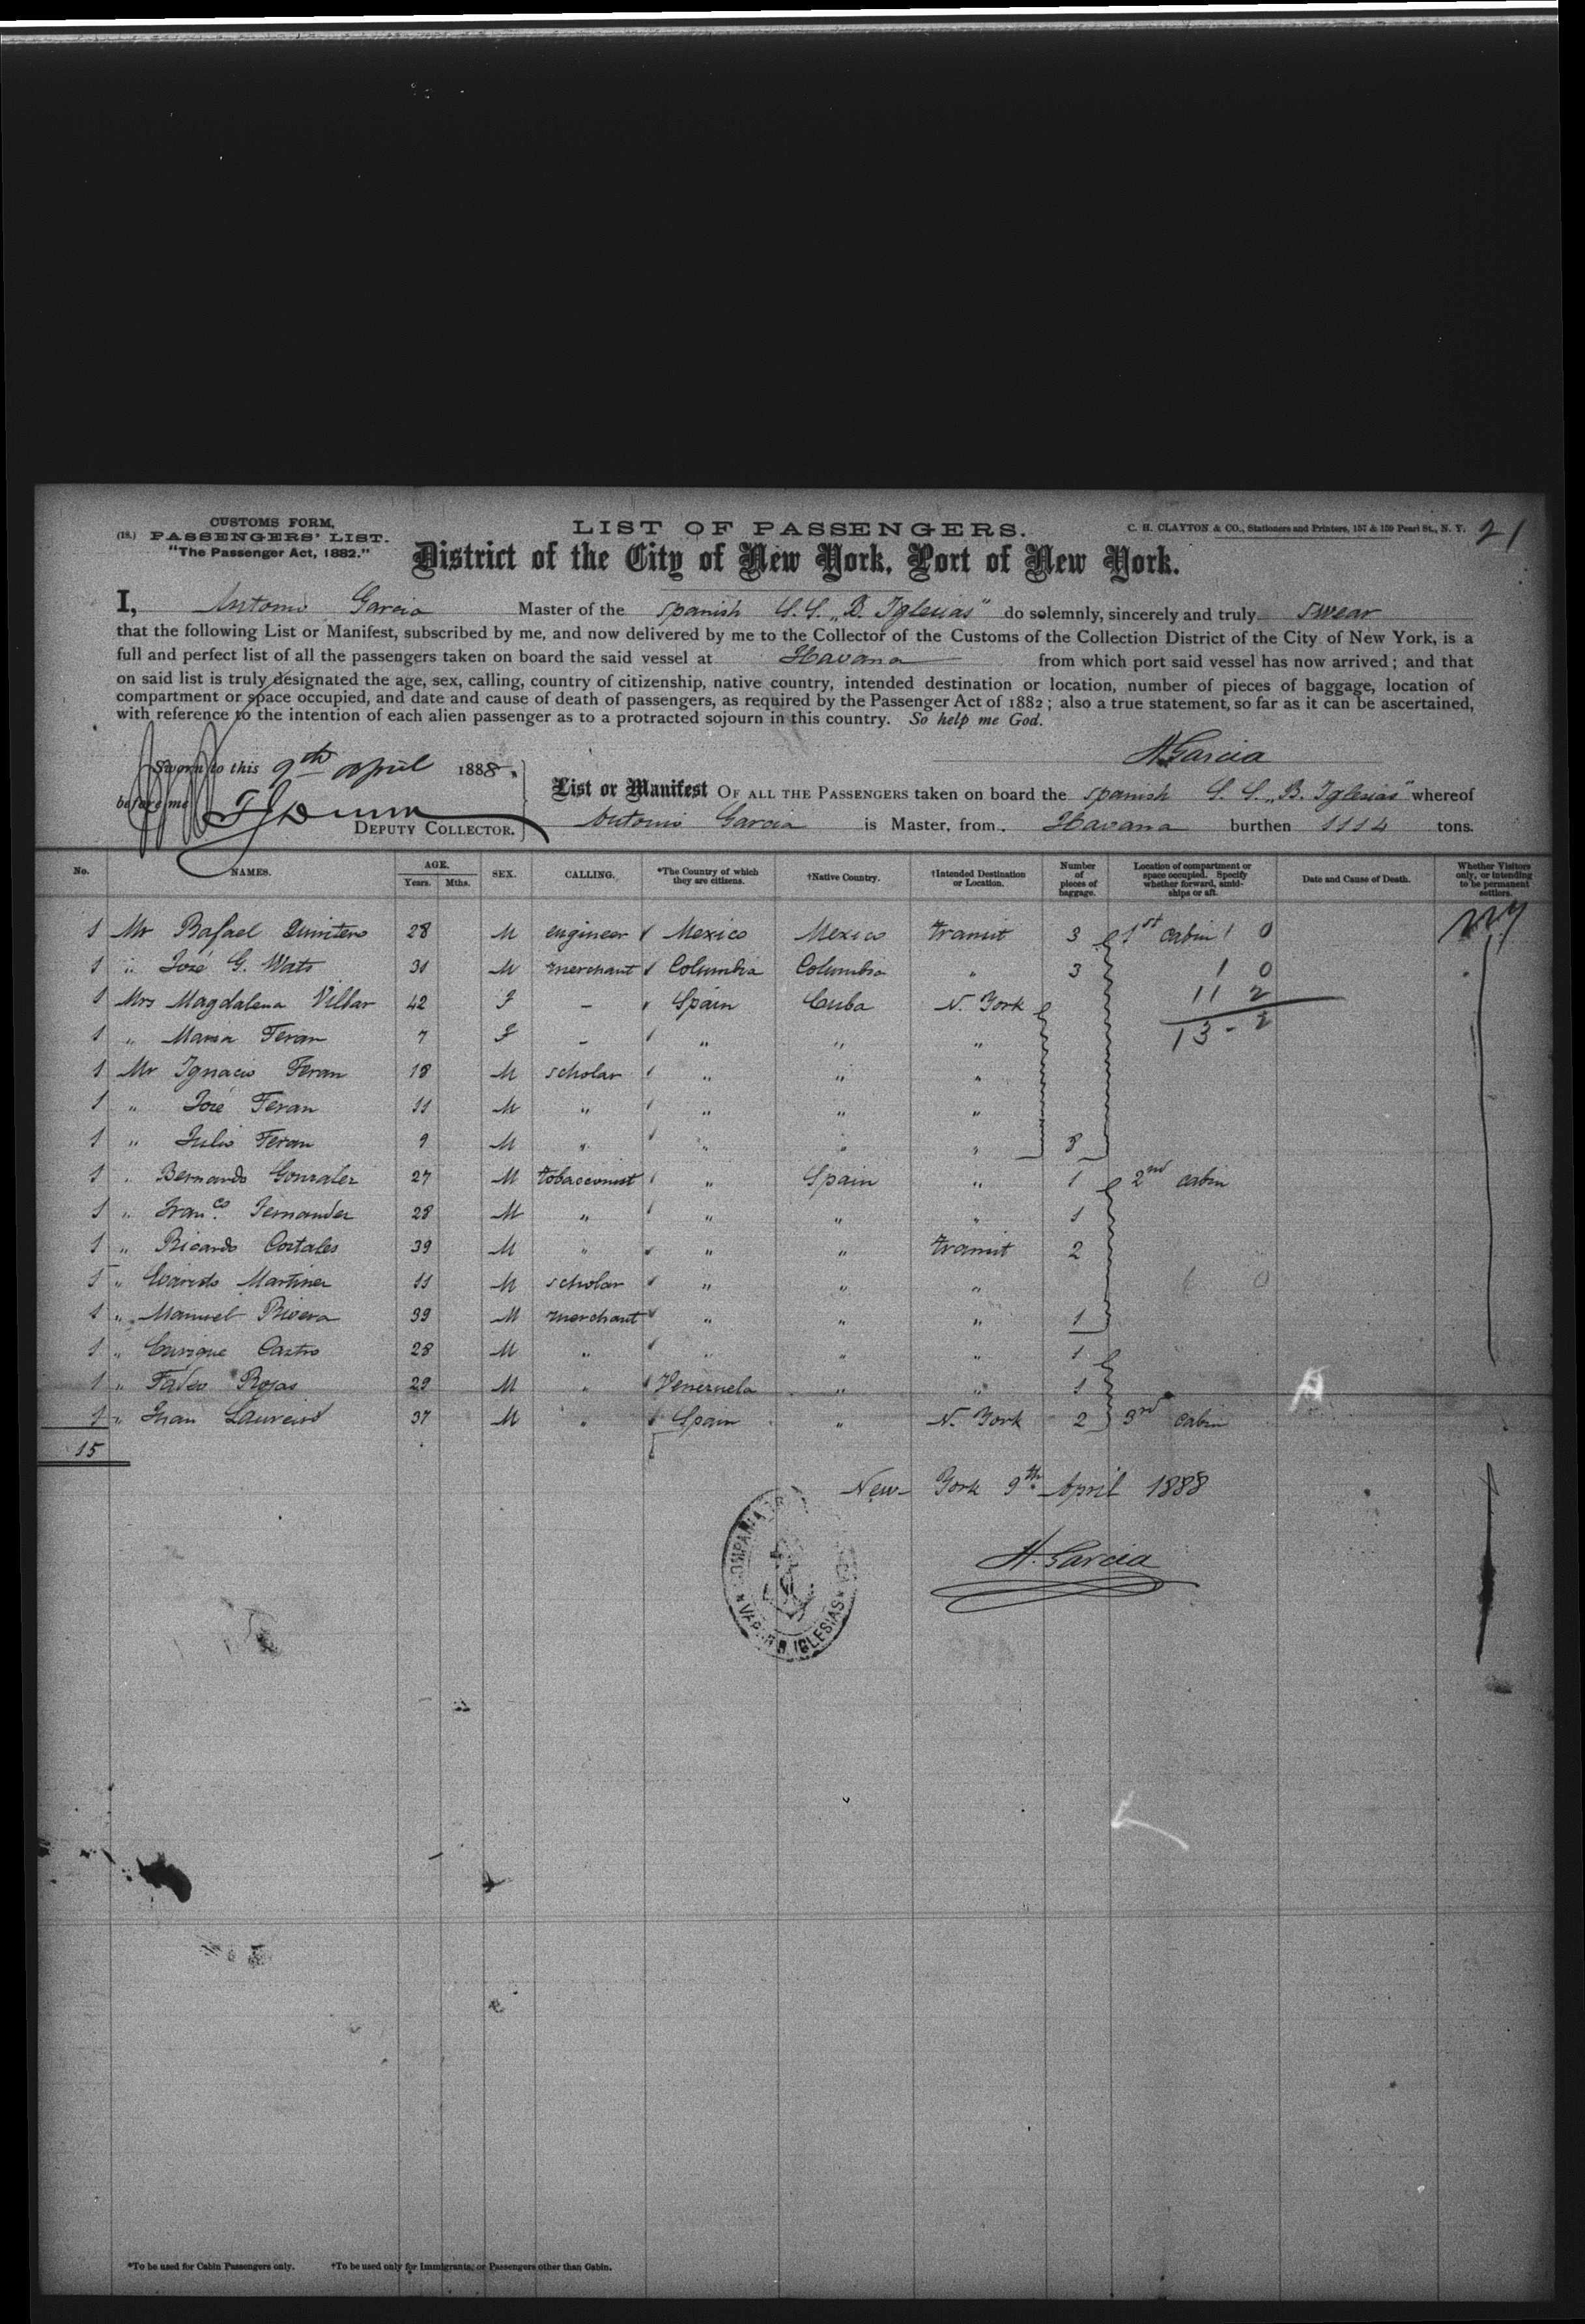 CUSTOMS FORM,
(18.) PASSENGERS' LIST.
"The Passenger Act, 1882."
LIST OF PASSENGERS.
C. H. CLAYTON & CO., Stationers and Printers, 157 & 159 Pearl St., N. Y.
21
District of the City of New York, Port of New York.
I, Antonio Garcia Master of the spanish S.S. „B. Iglesias" do solemnly, sincerely and truly swear
that the following List or Manifest, subscribed by me, and now delivered by me to the Collector of the Customs of the Collection District of the City of New York, is a
full and perfect list of all the passengers taken on board the said vessel at Havana from which port said vessel has now arrived; and that
on said list is truly designated the age, sex, calling, country of citizenship, native country, intended destination or location, number of pieces of baggage, location of
compartment or space occupied, and date and cause of death of passengers, as required by the Passenger Act of 1882; also a true statement, so far as it can be ascertained,
with reference to the intention of each alien passenger as to a protracted sojourn in this country. So help me God.
A. Garcia
Sworn to this 9th april 1888.
before me
DEPUTY COLLECTOR.
List or Manifest OF ALL THE PASSENGERS taken on board the spanish S. S. „B. Iglesias" whereof
Antonio Garcia is Master, from Havana burthen 1114 tons.
No. NAMES. AGE. Years. Mths. SEX. CALLING. *The Country of which they are citizens. †Native Country. †Intended Destination or Location. Number of pieces of baggage. Location of compartment or space occupied. Specify whether forward, amidships or aft. Date and Cause of Death. Whether Visitors only, or intending to be permanent settlers.
1 Mr Rafael Quintero 28 M engineer Mexico Mexico transit 3 1st cabin 1 0
1 " José G. Wats 31 M merchant Columbia Columbia " 3 1 0
1 Mrs Magdalena Villar 42 F - Spain Cuba N. York 11 2
1 " Maria Feran 7 F - " " " 13 - 2
1 Mr Ignacio Feran 18 M scholar " " "
1 " José Feran 11 M " " " "
1 " Julio Feran 9 M " " " " 8
1 " Bernardo Gonzalez 27 M tobacconist " Spain " 1 2nd cabin
1 " Franco. Fernandez 28 M " " " " 1
1 " Ricardo Costales 39 M " " " transit 2
1 " Martinez 11 M scholar " " "
1 " Manuel Rivera 39 M merchant " " " 1
1 " Enrique Castro 28 M " " " " 1
1 " Tadeo Rojas 29 M " Venezuela " " 1
1 " Juan 37 M " Spain " N. York 2 3rd cabin
15
New York 9th April 1888
A. Garcia
COMPAÑIA
VAPOR B. IGLESIAS
*To be used for Cabin Passengers only. †To be used only for Immigrants, or Passengers other than Cabin.